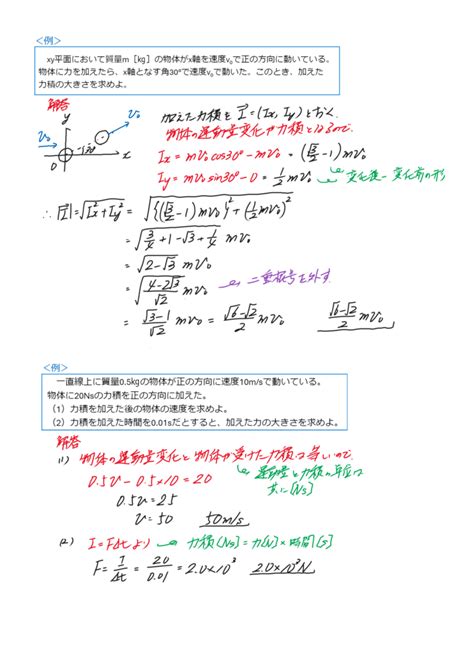 <例>
xy平面において質量m［kg］の物体がx軸を速度v₀で正の方向に動いている。
物体に力を加えたら、x軸となす角30°で速度v₀で動いた。このとき、加えた
力積の大きさを求めよ。
解答
y
v₀
v₀
30°
O
x
加えた力積を I⃗=(Ix, Iy) とおく。
物体の運動量変化が力積となるので、
Ix = mv₀cos30° - mv₀ = (√3/2 - 1)mv₀
Iy = mv₀sin30° - 0 = 1/2 mv₀
変化後-変化前の形
∴ |I⃗| = √(Ix²+Iy²) = √({(√3/2 - 1)mv₀}² + (1/2 mv₀)²)
= √(3/4 + 1 - √3 + 1/4) mv₀
= √(2-√3) mv₀
= √(4-2√3)/√2 mv₀
二重根号を外す
= (√3-1)/√2 mv₀ = (√6-√2)/2 mv₀
(√6-√2)/2 mv₀
<例>
一直線上に質量0.5kgの物体が正の方向に速度10m/sで動いている。
物体に20Nsの力積を正の方向に加えた。
（1）力積を加えた後の物体の速度を求めよ。
（2）力積を加えた時間を0.01sだとすると、加えた力の大きさを求めよ。
解答
(1) 物体の運動量変化と物体が受けた力積は等しいので、
0.5v - 0.5×10 = 20
運動量と力積の単位は
共に[Ns]
0.5v = 25
v = 50
50m/s
(2) I=FΔtより
力積[Ns]=力[N]×時間[s]
F = I/Δt = 20/0.01 = 2.0×10³
2.0×10³N